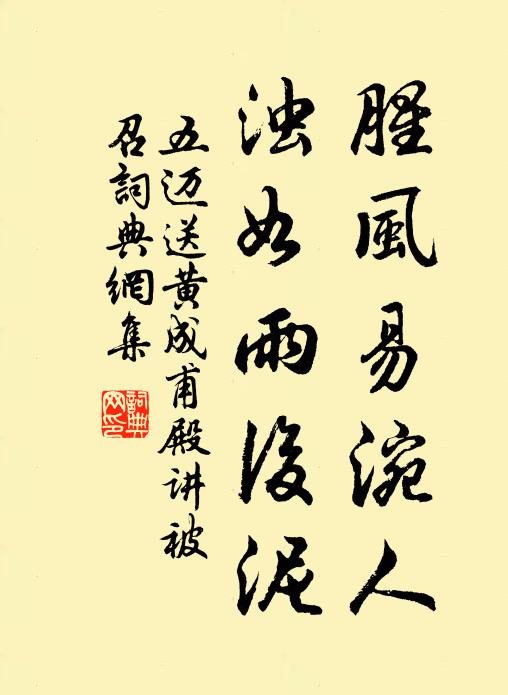 腥風易涴人
浊如雨後泥
五迈送黄成甫殿讲被
召詞典網集
詞典
网印